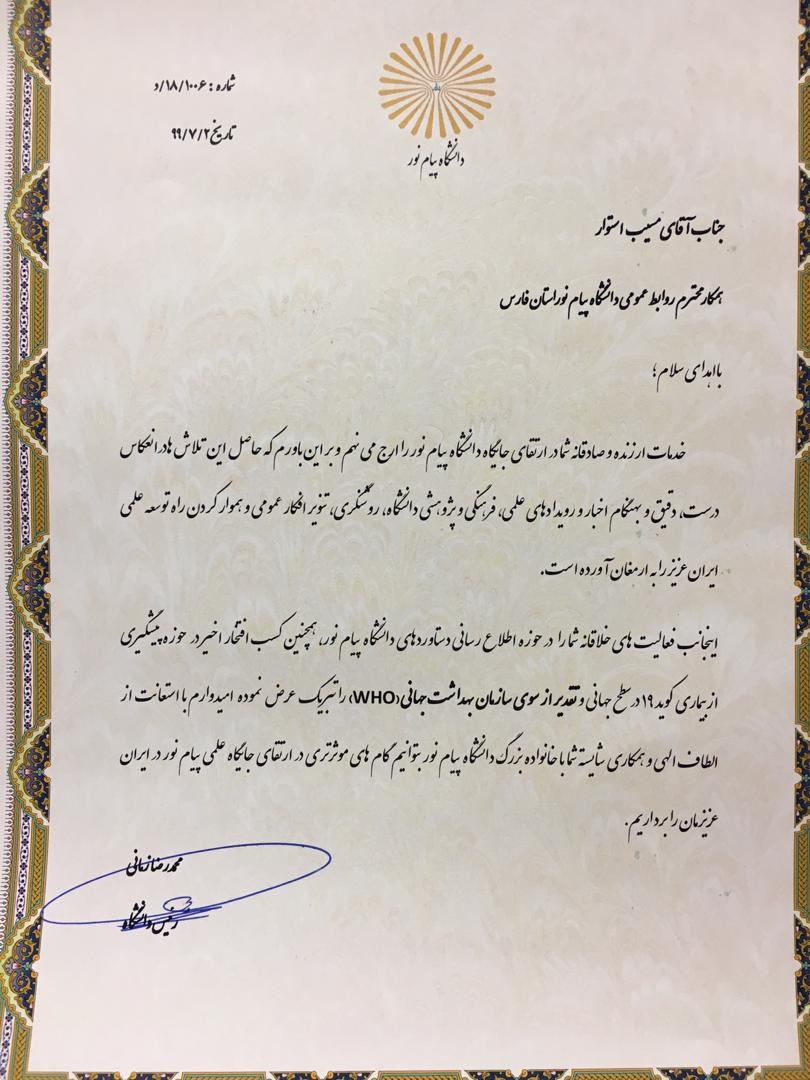 شماره : ۱۸/۱۰۰۶/د
تاریخ ۹۹/۷/۲
دانشگاه پیام نور
جناب آقای مسیب استوار
همکار محترم روابط عمومی دانشگاه پیام نور استان فارس
با اهدای سلام؛
خدمات ارزنده و صادقانه شما در ارتقای جایگاه دانشگاه پیام نور را ارج می نهم و بر این باورم که حاصل این تلاش ها در انعکاس
درست، دقیق و بهنگام اخبار و رویدادهای علمی، فرهنگی و پژوهشی دانشگاه، روشنگری، تنویر افکار عمومی و هموار کردن راه توسعه علمی
ایران عزیز را به ارمغان آورده است.
اینجانب فعالیت های خلاقانه شما را در حوزه اطلاع رسانی دستاوردهای دانشگاه پیام نور، همچنین کسب افتخار اخیر در حوزه پیشگیری
از بیماری کوید ۱۹ در سطح جهانی و تقدیر از سوی سازمان بهداشت جهانی (WHO) را تبریک عرض نموده امیدوارم با استعانت از
الطاف الهی و همکاری شایسته شما با خانواده بزرگ دانشگاه پیام نور بتوانیم گام های موثرتری در ارتقای جایگاه علمی پیام نور در ایران
عزیزمان را برداریم.
محمدرضا زمانی
رئیس دانشگاه